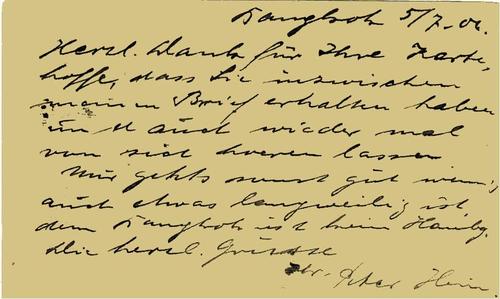 Bangkok 5/7. 06.
Herzl. Dank für Ihre Karte,
hoffe, dass Sie inzwischen
meinen Brief erhalten haben
und auch wieder mal
von sich hoeren lassen
Mir gehts sonst gut wenn
auch etwas langweilig ist,
denn Bangkok ist kein Hambg.
Die herzl. Grüsse
Ihr. Peter Hein